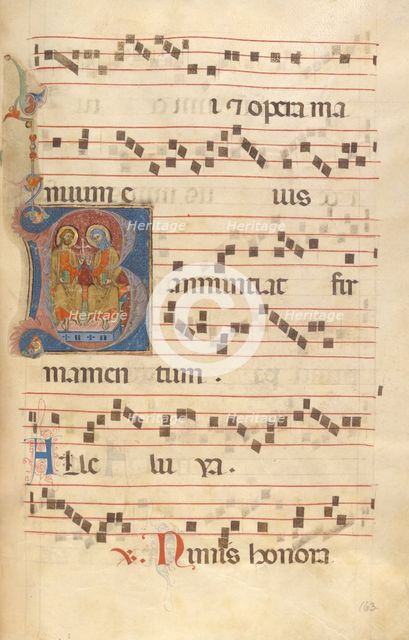 i ⁊ opera ma
nuum e ius
B annuntiat fir
mamen tum.
Alle lu ya.
℣. Nimis honora
163
Heritage
Heritage
Heritage
Heritage
Heritage
Heritage
©